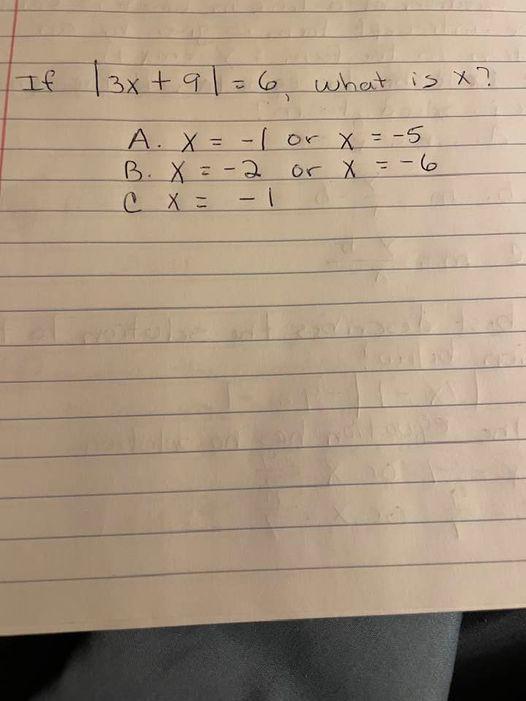 If |3x + 9| = 6, what is x?
A. x = -1 or x = -5
B. x = -2 or x = -6
C x = -1